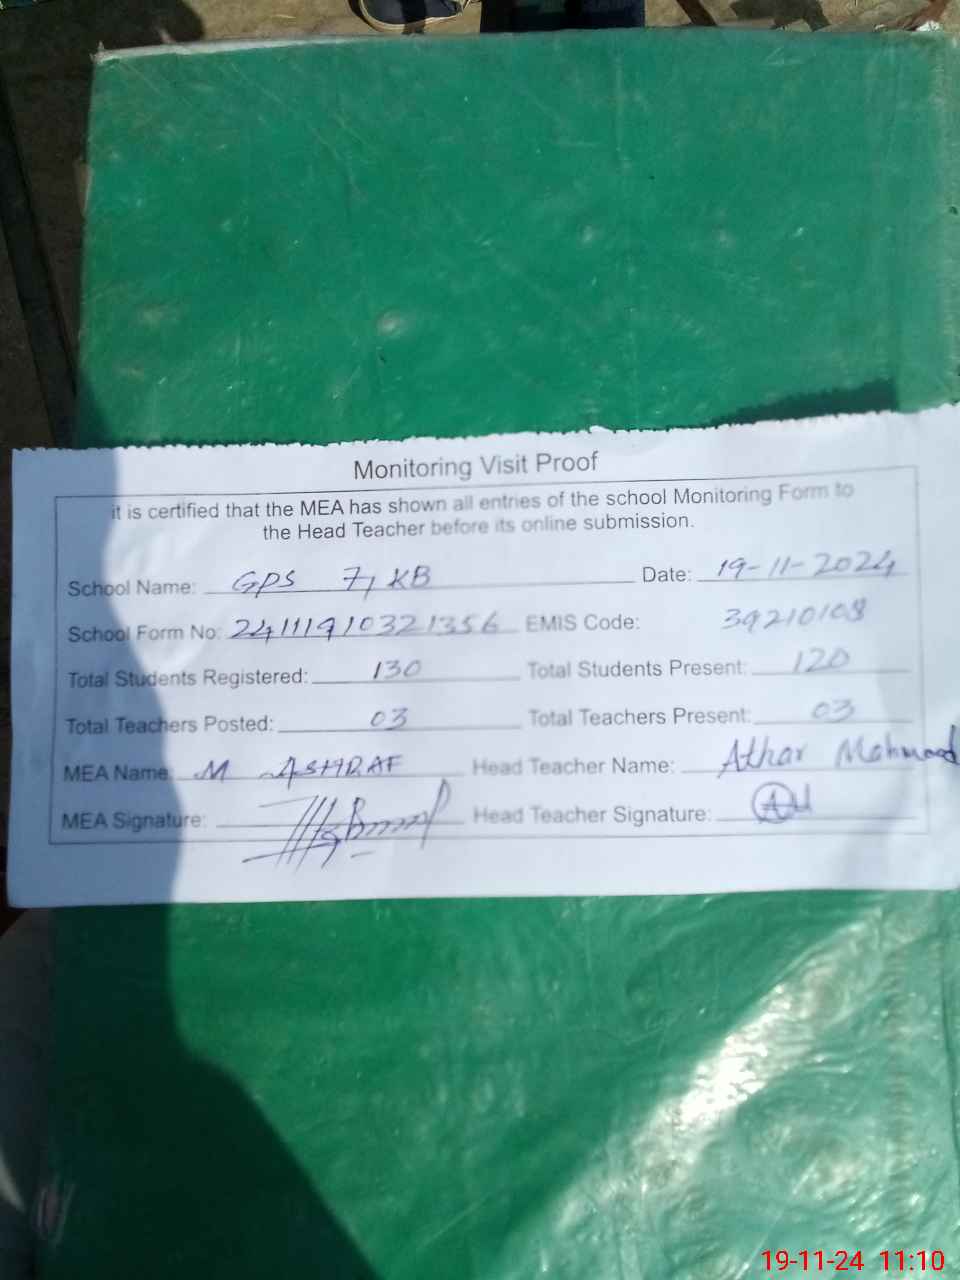 Monitoring Visit Proof
it is certified that the MEA has shown all entries of the school Monitoring Form to
the Head Teacher before its online submission.
School Name: GPS 71 KB Date: 19-11-2024
School Form No: 24111910321356 EMIS Code: 39210108
Total Students Registered: 130 Total Students Present: 120
Total Teachers Posted: 03 Total Teachers Present: 03
MEA Name: M ASHRAF Head Teacher Name: Athar Mahmood
MEA Signature: Head Teacher Signature:
19-11-24 11:10